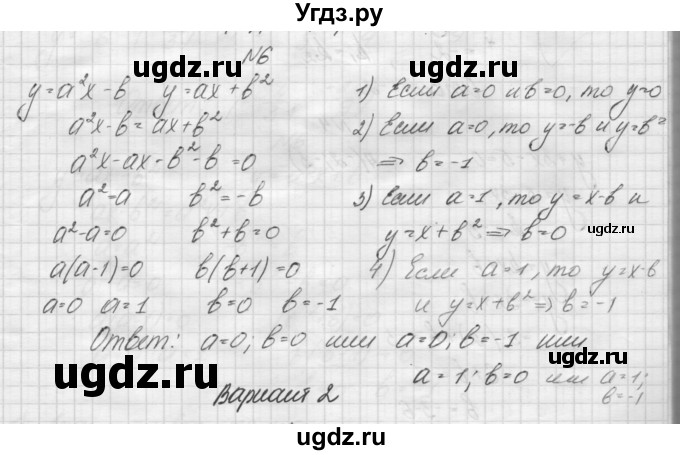 Угдз.ру
№6
y=a²x-b   y=ax+b²
a²x-b=ax+b²
a²x-ax-b²-b=0
a²=a   b²=-b
a²-a=0   b²+b=0
a(a-1)=0   b(b+1)=0
a=0   a=1   b=0   b=-1
1) Если a=0 и b=0, то y=0
2) Если a=0, то y=-b и y=b²
⇒ b=-1
3) Если a=1, то y=x-b и
y=x+b² ⇒ b=0
4) Если a=1, то y=x-b
и y=x+b² ⇒ b=-1
Ответ: a=0; b=0 или a=0; b=-1 или
a=1; b=0 или a=1;
b=-1
Вариант 2
ugdz.ru
ugdz.ru
ugdz.ru
ugdz.ru
ugdz.ru
ugdz.ru
ugdz.ru